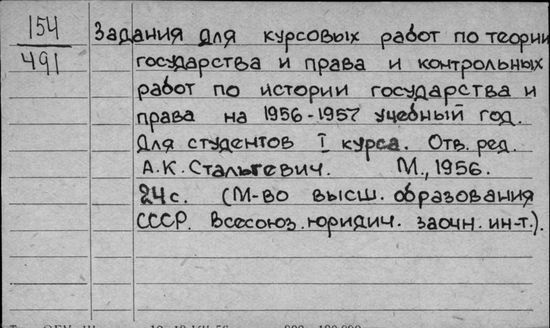 154
491
Задания для курсовых работ по теории
государства и права и контрольных
работ по истории государства и
права на 1956-1957 учебный год.
Для студентов I курса. Отв. ред.
А.К. Стальгевич. М., 1956.
24 с. (М-во высш. образования
СССР. Всесоюз. юридич. заочн. ин-т.).